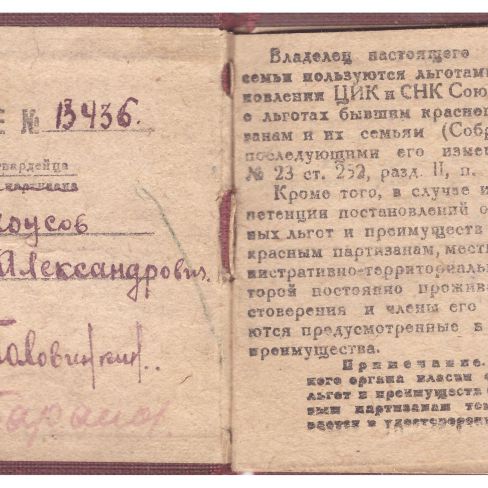 Е № 13436.
вардейца
партизана
коусов
Александрович.
Владелец настоящего
семьи пользуются льготам
новления ЦИК и СНК Союз
о льготах бывшим красног
ванам и их семьям (Собр
последующими его измен
№ 23 ст. 252, разд. II, п.
Кроме того, в случае и
петенции постановлений о
ных льгот и преимуществ
красным партизанам, местн
нистративно-территориальн
торой постоянно прожива
стоверения и члены его
ются предусмотренные в
преимущества.
Примечание.
ного органа власти
льгот и преимуществ
ным партизанам тек
вается и удостоверен